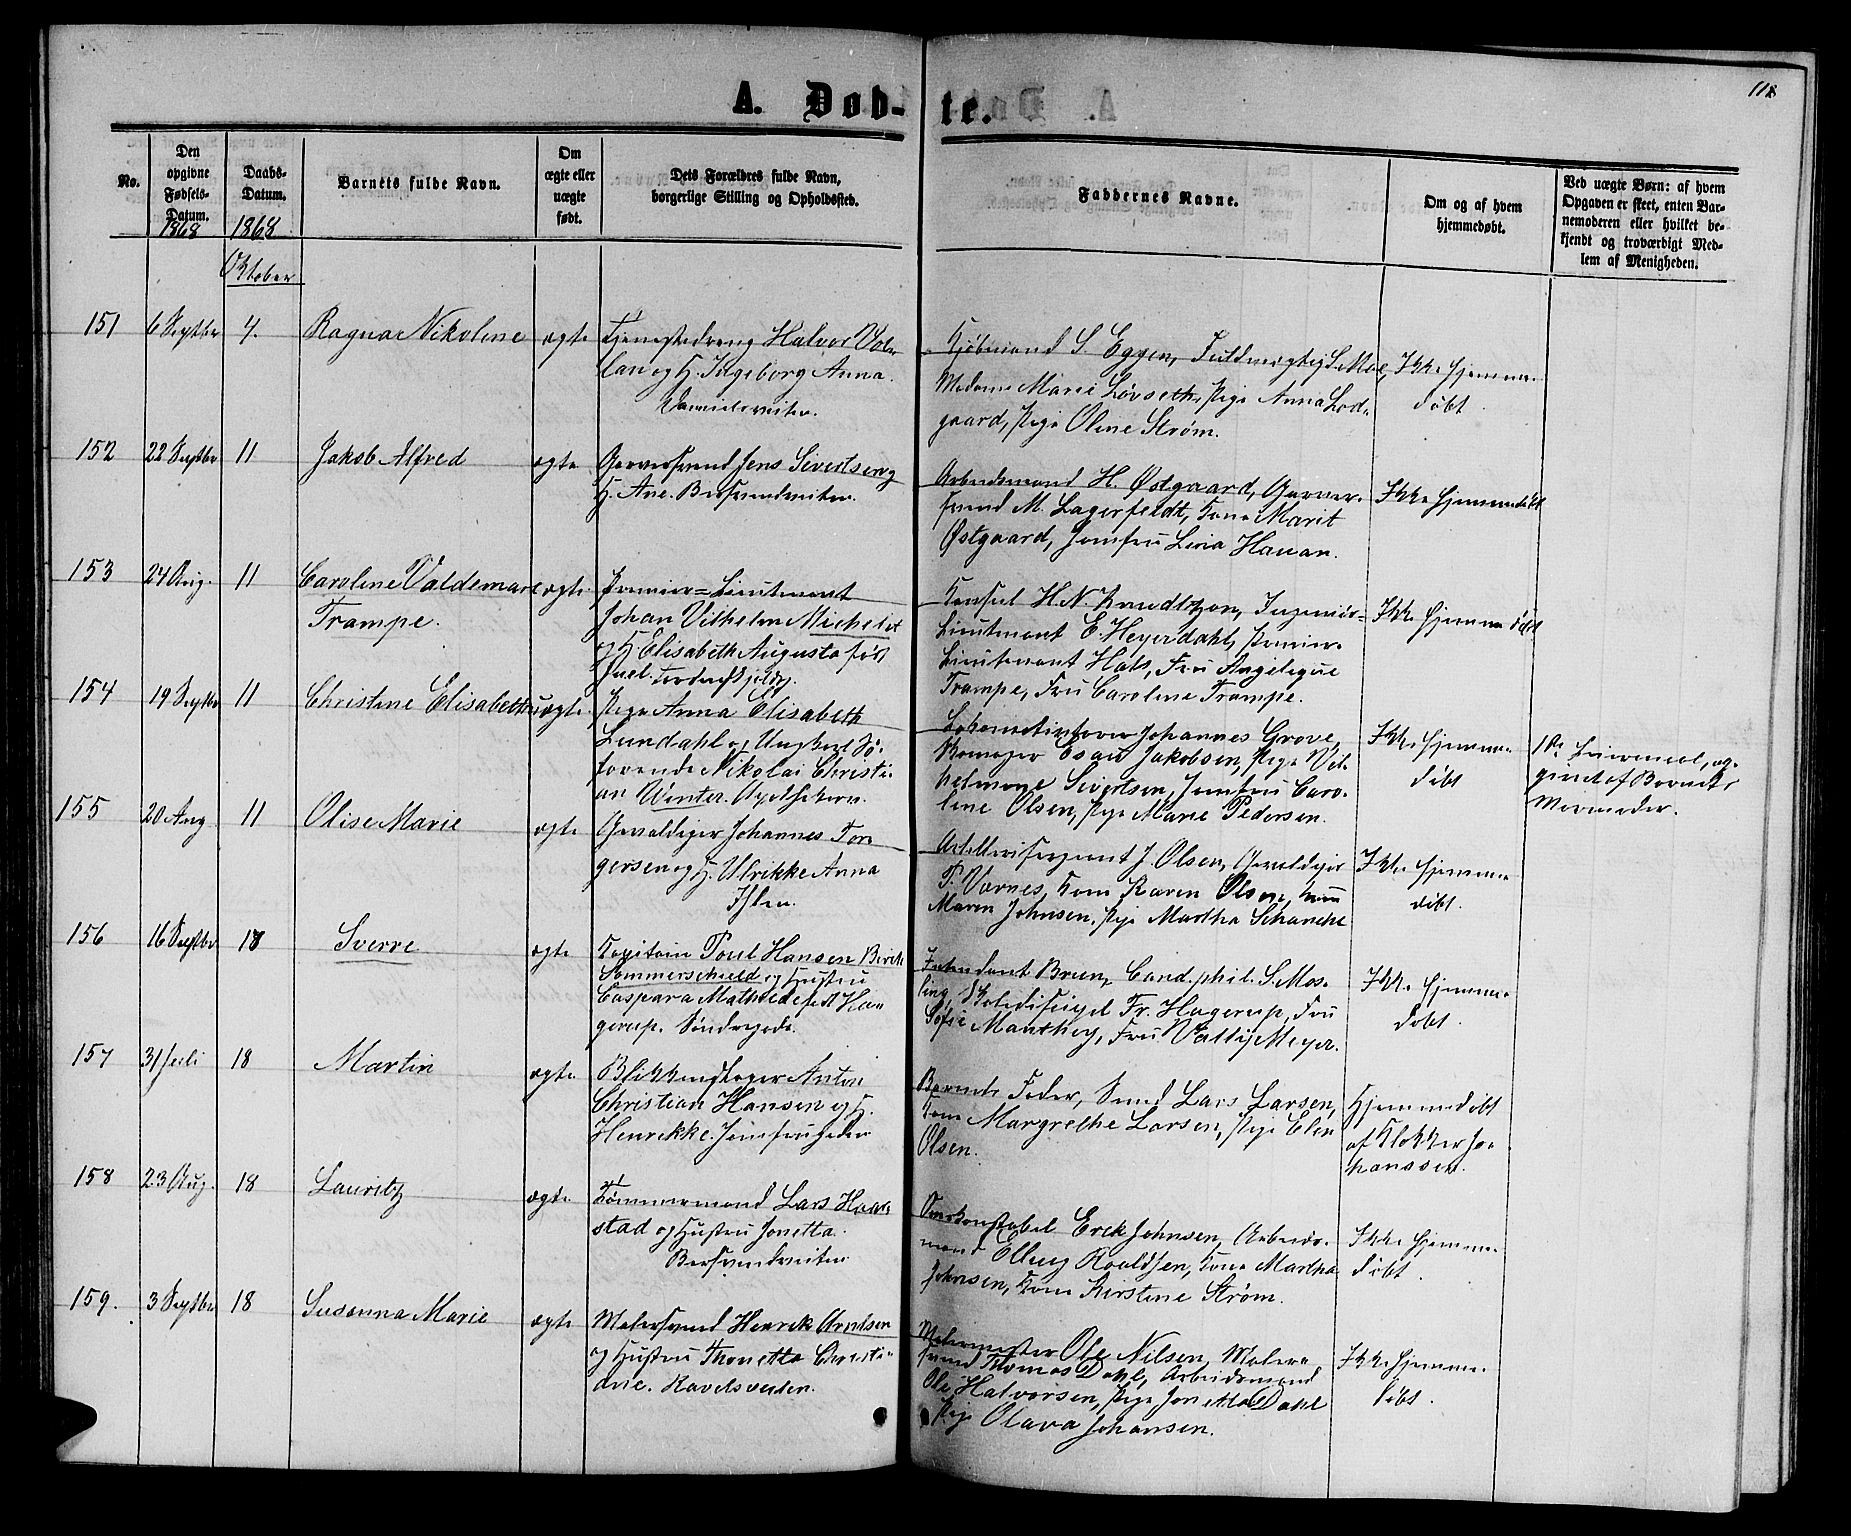 A. Døb-
te.
118
No.
Den
opgivne
Fødsels-
Datum.
1868
Daabs-
Datum.
1868
Oktober
Barnets fulde Navn.
Om
ægte eller
uægte
født.
Dets Forældres fulde Navn,
borgerlige Stilling og Opholdssted.
Faddernes Navne.
Om og af hvem
hjemmedøbt.
Ved uægte Børn: af hvem
Opgaven er skeet, enten Bar-
nemoderen eller hvilket be-
kjendt og troværdigt Med-
lem af Menigheden.
151
6 Septbr
4.
Ragna Nikoline
ægte
Tjenestedreng Halvor
og H. Ingeborg Anna.
Danielsveiten.
Kjøbmand S. Eggen, Fuldmægtig S. Moe,
Madame Marie Løvseth, Pige Anna Lod-
gaard, Pige Oline Strøm.
Ikke hjemme-
døbt.
152
22 Septbr
11
Jakob Alfred
ægte
Garversvend Jens Sivertsen og
H. Ane. Bersvendveiten.
Arbeidsmand H. Østgaard, Garver-
svend M. Lagerfeldt, Kone Marit
Østgaard, Jomfru Lina Hanan.
Ikke hjemmedøbt
153
24 Aug.
11
Caroline Valdemare
Trampe.
ægte.
Premier-Lieutenant
Johan Vilhelm Michelet
og H. Elisabeth Augusta født
Juel. Tordenskjoldsg.
Konsul H. N. Knudtzon, Ingeniør-
Lieutenant E. Heyerdahl, Premier-
Lieutenant Hals, Fru Angelique
Trampe, Fru Caroline Trampe.
Ikke hjemmedøbt
154
19 Septbr
11
Christine Elisabeth
uægte.
Pige Anna Elisabeth
Lundahl og Ungkarl Sø-
farende Nikolai Christi-
an Winter. Apothekerv.
Lokomotivfører Johannes Grove,
Skomager Esau Jakobsen, Pige Vil-
helmine Sivertsen, Jomfru Caro-
line Olsen, Pige Marie Pedersen.
Ikke hjemme-
døbt
1ste Leiermaal, op-
givet af Barnets
Mormoder.
155
20 Aug
11
Olise Marie
ægte
Gevaldiger Johannes Tor-
gersen og H. Ulrikke Anna
Ihlen.
Artillerisergeant J. Olsen, Gevaldiger
P. Værnes, Kone Karen Olsen, Kone
Maren Johnsen, Pige Martha Schanche
Ikke hjemme-
døbt.
156
16 Septbr
18
Sverre
ægte
Kapitain Poul Hansen Birch
Sommerschield og Hustru
Caspara Mathilde født Ha-
gerup. Søndregade.
Intendant Bruun, Cand. phil. S. Mos-
ling, Fr. Hagerup, Fru
Sofie Manthey, Fru Vally Meyer.
Ikke hjemme-
døbt.
157
31 Juli
18
Martin
ægte
Blikkenslager Anton
Christian Hansen og H.
Henrikke. Jomfrugaden
Barnets Fader, Smed Lars Larsen,
Kone Margrethe Larsen, Pige Elen
Olsen.
Hjemmedøbt
af Klokker Jo-
hanssen.
158
23 Aug.
18
Lauritz
ægte.
Tømmermand Lars Haar-
stad og Hustru Jonetta.
Bersvendveiten
Erik Johnsen, Arbeids-
mand Ellung Roaldsen, Kone Martha
Johnsen, Kone Kirstine Strøm.
Ikke hjemme-
døbt.
159.
3 Septbr
18
Susanna Marie
ægte
Malersvend Henrik Arntsen
og Hustru Thonetta Christi-
ane. Ravelsveiten.
Malermester Ole Nilsen, Maler-
svend Thomas Dahl, Arbeidsmand
Ole Halvorsen, Pige Jonetta Dahl
Pige Olava Johansen.
Ikke hjemme-
døbt.